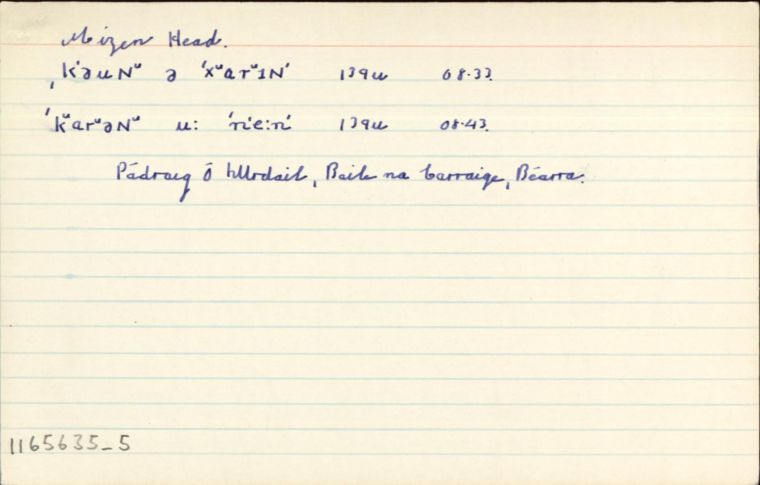 Mizen Head.
ˌk′əuNᵘ ə ′xᵘarᵘɪN′ 139u 08.33.
′kᵘarᵘəN u: ′r′i′e:r′i 139u 08.43.
Pádraig Ó hUrdail, Baile na Carraige, Béarra.
1165635_5